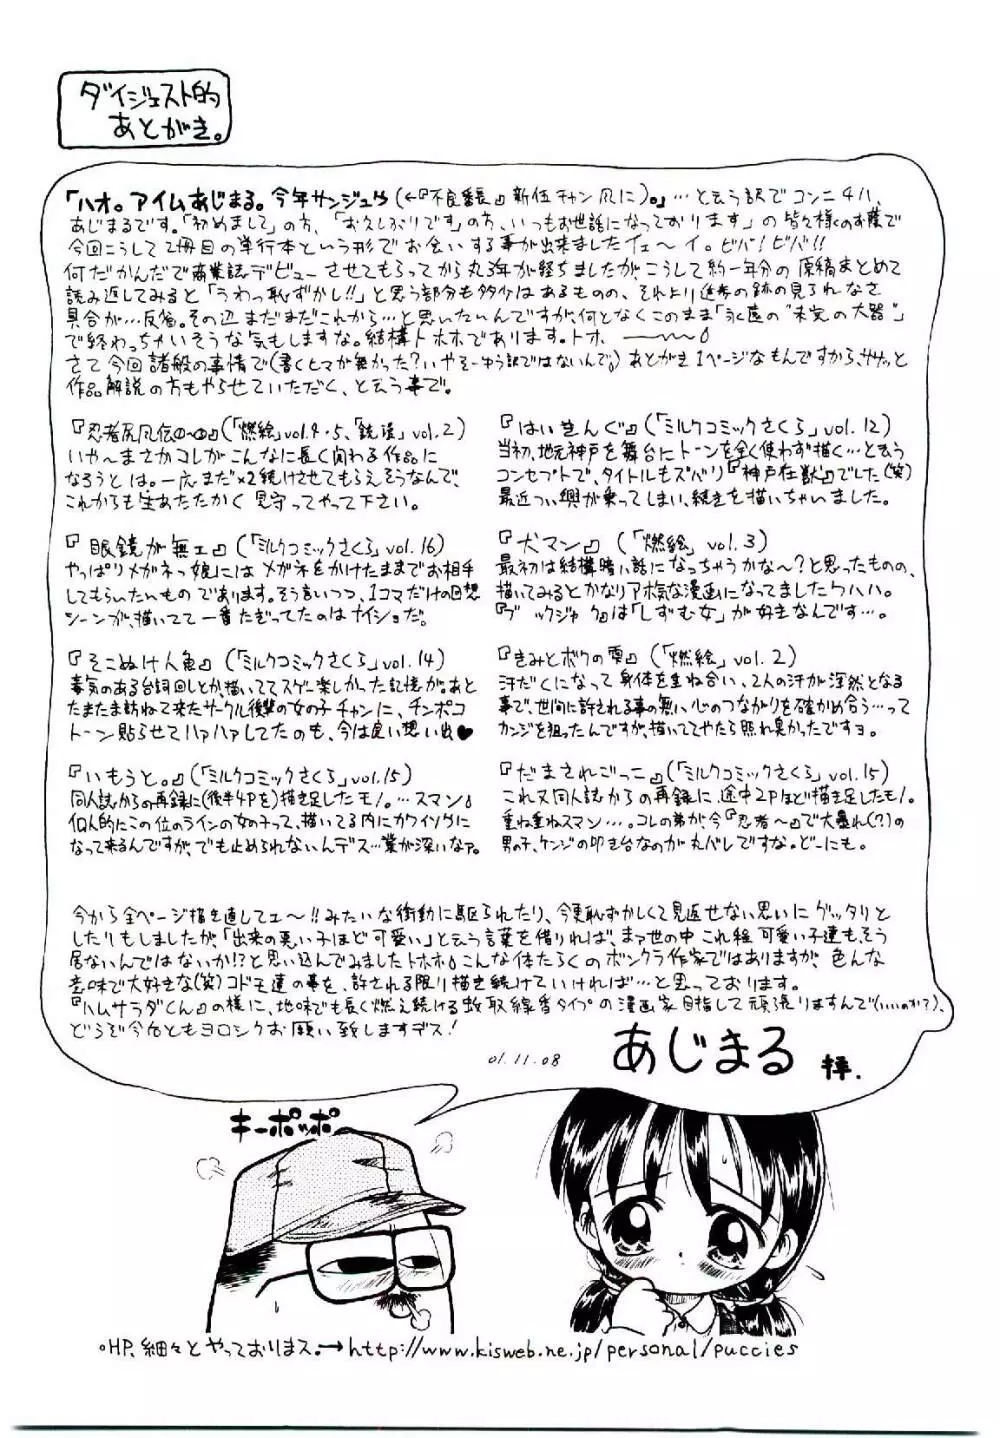 ダイジェスト的
あとがき。
「ハオ。アイムあじまる。今年サンジュウ(←『不良番長』新伍チャン風に)。」…と云う訳でコンニチハ、
あじまるです。「初めまして」の方、「お久しぶりです」の方、いつもお世話になっております」の皆々様のお蔭で
今回こうして2冊目の単行本という形でお会いする事が出来ましたイェ〜イ。ビバ!ビバ!!
何だかんだで商業誌デビューさせてもらってから丸3年が経ちましたが、こうして約一年分の原稿まとめて
読み返してみると「うわっ恥ずかし!!」と思う部分も多少はあるものの、それより進歩の跡の見られなさ
具合が…反省。その辺まだまだこれから…と思いたいんですが、何となくこのまま「永遠の"未完の大器"」
で終わっちゃいそうな気もしますな。結構トホホであります。トホ
さて今回諸般の事情で(書くヒマが無かった?いやそーゆう訳ではないんで。)あとがき1ページなもんですから、ササッと
作品解説の方もやらせていただく、と云う事で。
『忍者尻風伝』(「燃絵」vol.4・5、「銃淫」vol.2)
いや〜まさかコレがこんなに長く関わる作品に
なろうとは。一応まだ×2続けさせてもらえそうなんで、
これからも生あたたかく見守ってやって下さい。
『眼鏡が無ェ』(「ミルクコミックさくら」vol.16)
やっぱりメガネっ娘にはメガネをかけたままでお相手
してもらいたいものであります。そう言いつつ、1コマだけの回想
シーンが、描いてて一番たぎってたのはナイショだ。
『そこぬけ人魚』(「ミルクコミックさくら」vol.14)
毒気のある台詞回しとか、描いててスゲー楽しかった記憶が。あと
たまたま訪ねて来たサークル後輩の女の子チャンに、チンポコ
トーン貼らせてハァハァしてたのも、今は良い想い出♥
『いもうと。』(「ミルクコミックさくら」vol.15)
同人誌からの再録に(後半4Pを)描き足したモノ。…スマン。
個人的にこの位のラインの女の子って、描いてる内にカワイソウに
なって来るんですが、でも止められないんデス…業が深いなァ。
『はいきんぐ』(「ミルクコミックさくら」vol.12)
当初、地元神戸を舞台にトーンを全く使わず描く…と云う
コンセプトで、タイトルもズバリ『神戸在獣』でした(笑)
最近つい興が乗ってしまい、続きを描いちゃいました。
『犬マン』(「燃絵」vol.3)
最初は結構暗い話になっちゃうかな〜?と思ったものの、
描いてみるとかなりアホ気な漫画になってましたワハハ。
は「しずむ女」が好きなんです…。
『きみとボクの雫』(「燃絵」vol.2)
汗だくになって身体を重ね合い、2人の汗が渾然となる
事で、世間に許される事の無い心のつながりを確かめ合う…って
カンジを狙ったんですが、描いててやたら照れ臭かったですョ。
『だまされごっこ』(「ミルクコミックさくら」vol.15)
これ又同人誌からの再録に、途中2Pほど描き足したモノ。
重ね重ねスマン…。コレの弟が今『忍者〜』で大暴れ(?)の
男の子、ケンジの叩き台なのが丸バレですな。どーにも。
今から全ページ描き直してェ〜!!みたいな衝動に駆られたり、今更恥ずかしくて見返せない思いにグッタリと
したりもしましたが、「出来の悪い子ほど可愛い」と云う言葉を借りれば、まァ世の中これ程可愛い子達も、そう
居ないんではないか!?と思い込んでみましたトホホ。こんな体たらくのボンクラ作家ではありますが、色んな
意味で大好きな(笑)コドモ達の事を、許される限り描き続けていければ…と思っております。
『ハムサラダくん』の様に、地味でも長く燃え続ける蚊取線香タイプの漫画家目指して頑張りますんで(いいのか?)、
どうぞ今后ともヨロシクお願い致しますデス!
01.11.08
あじまる 拝.
キーポッポ
。HP、細々とやっておりまス。→http://www.kisweb.ne.jp/personal/puccies